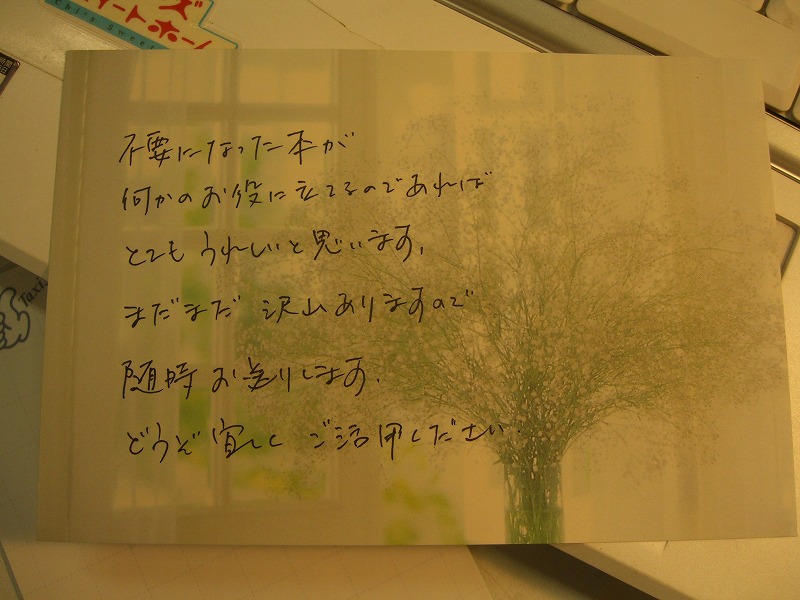 ズ
イートホーム
chi's sweet
不要になった本が
何かのお役に立てるのであれば
とてもうれしいと思います。
まだまだ 沢山ありますので
随時お送りします。
どうぞ宜しく ご活用ください.
Taxi